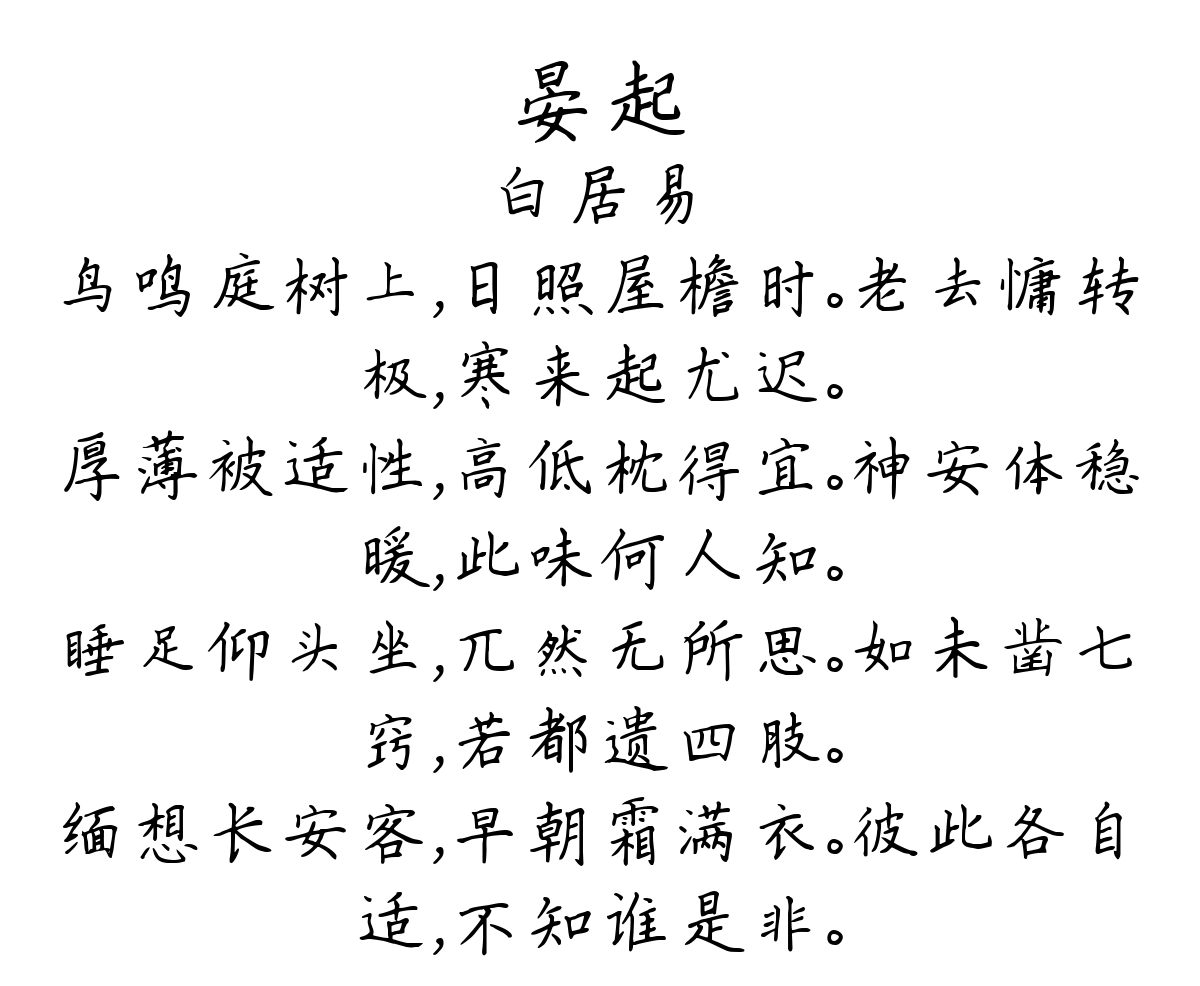 晏起
白居易
鸟鸣庭树上,日照屋檐时。老去慵转
极,寒来起尤迟。
厚薄被适性,高低枕得宜。神安体稳
暖,此味何人知。
睡足仰头坐,兀然无所思。如未凿七
窍,若都遗四肢。
缅想长安客,早朝霜满衣。彼此各自
适,不知谁是非。